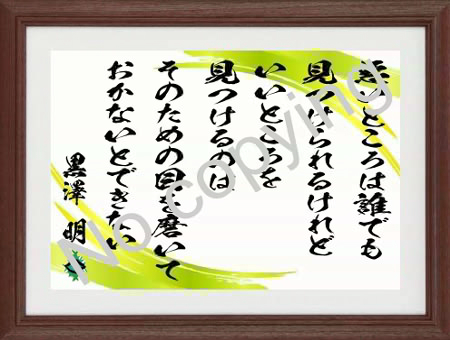 悪いところは誰でも
見つけられるけれど
いいところを
見つけるのは
そのための目を磨いて
おかないとできない
黒澤 明
No copying